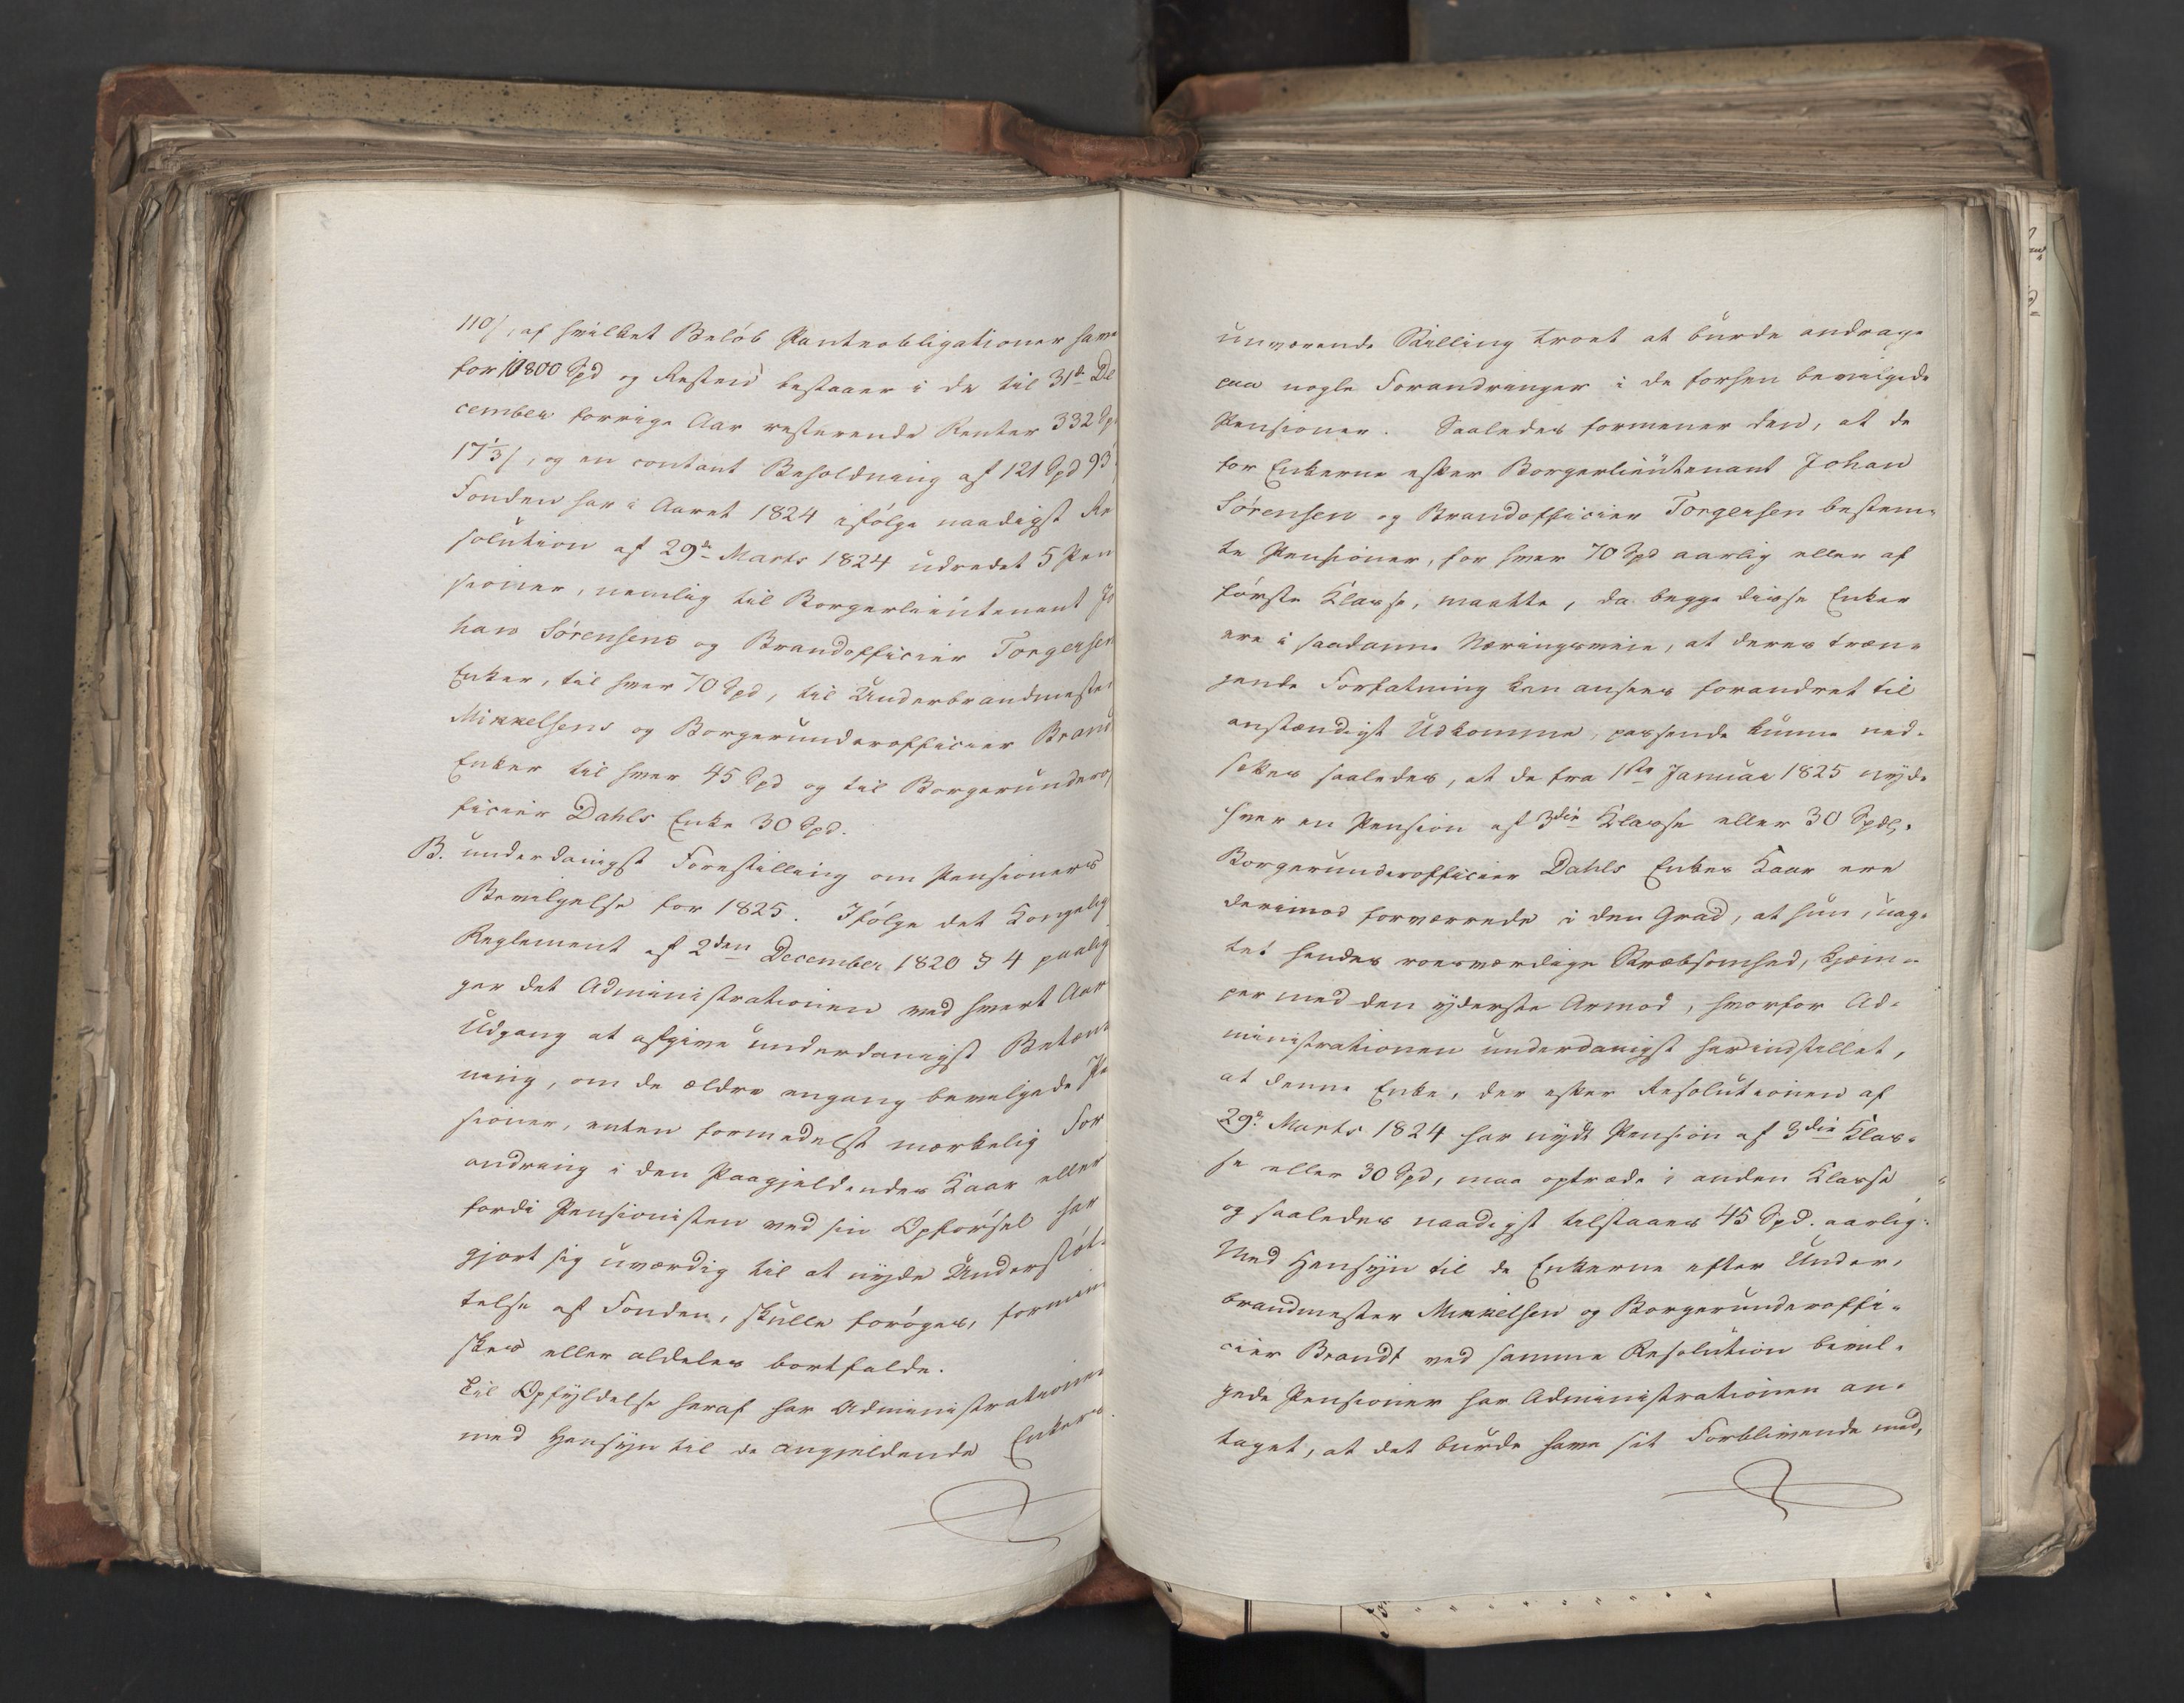 110 s, af hvilket Beløb Panteobligationer have
for 10800 Spd og Resten bestaaer i de til 31te De
cember forrige Aar resterende Renter 332 Spd
17⅓ s, og en contant Beholdning af 121 Spd 93
Fonden har i Aaret 1824 ifølge naadigst Re
solution af 29de Marts 1824 udredet 5 Pen
sioner, nemlig til Borgerlieutenant Jo
han Sørensens og Brandofficier Torgersens
Enker, til hver 70 Spd, til Underbrandmester
Mikkelsens og Borgerunderofficier Brand
Enker til hver 45 Spd og til Borgerunderof
ficier Dahls Enke 30 Spd.
B. underdanigst Forestilling om Pensioners
Bevilgelse for 1825. Ifølge det Kongelig
Reglement af 2den December 1820 § 4 paalig
ger det Administrationen ved hvert Aars
Udgang at afgive underdanigst Betænk
ning, om de ældre engang bevilgede Pen
sioner, enten formedelst mærkelig For
andring i den Paagjeldendes Kaar eller
fordi Pensionisten ved sin Opførsel har
gjort sig uværdig til at nyde Understøt-
telse af Fonden, skulle forøges, formind
skes eller aldeles bortfalde.
Til Opfyldelse heraf har Administrationen
med Hensyn til de angjeldende Enkers
nuværende Stilling troet at burde andrage
paa nogle Forandringer i de forhen bevilgede
Pensioner. Saaledes formener den, at de
for Enkerne efter Borgerlieutenant Johan
Sørensen og Brandofficier Torgersen bestem-
te Pensioner, for hver 70 Spd aarlig eller af
første Klasse, maatte, da begge disse Enker
ere i saadanne Næringsveie, at deres træn-
gende Forfatning kan ansees forandret til
anstændigt Udkomme, passende kunne ned-
sættes saaledes, at de fra 1ste Januar 1825 nyde
hver en Pension af 3die Klasse eller 30 Spdl.
Borgerunderofficier Dahls Enkes Kaar ere
derimod forværrede i den Grad, at hun, uag-
tet hendes roesværdige Stræbsomhed, kjæm-
per med den yderste Armod, hvorfor Ad-
ministrationen underdanigst har indstillet,
at denne Enke, der efter Resolutionen af
29de Marts 1824 har nydt Pension af 3die Klas-
se eller 30 Spd, maa optræde i anden Klasse
og saaledes naadigst tilstaaes 45 Spd. aarlig.
Med Hensyn til de Enkerne efter Under-
brandmester Mikkelsen og Borgerunderoffi-
cier Brandt ved samme Resolution bevil-
gede Pensioner har Administrationen an-
taget, at det burde have sit Forblivende med,